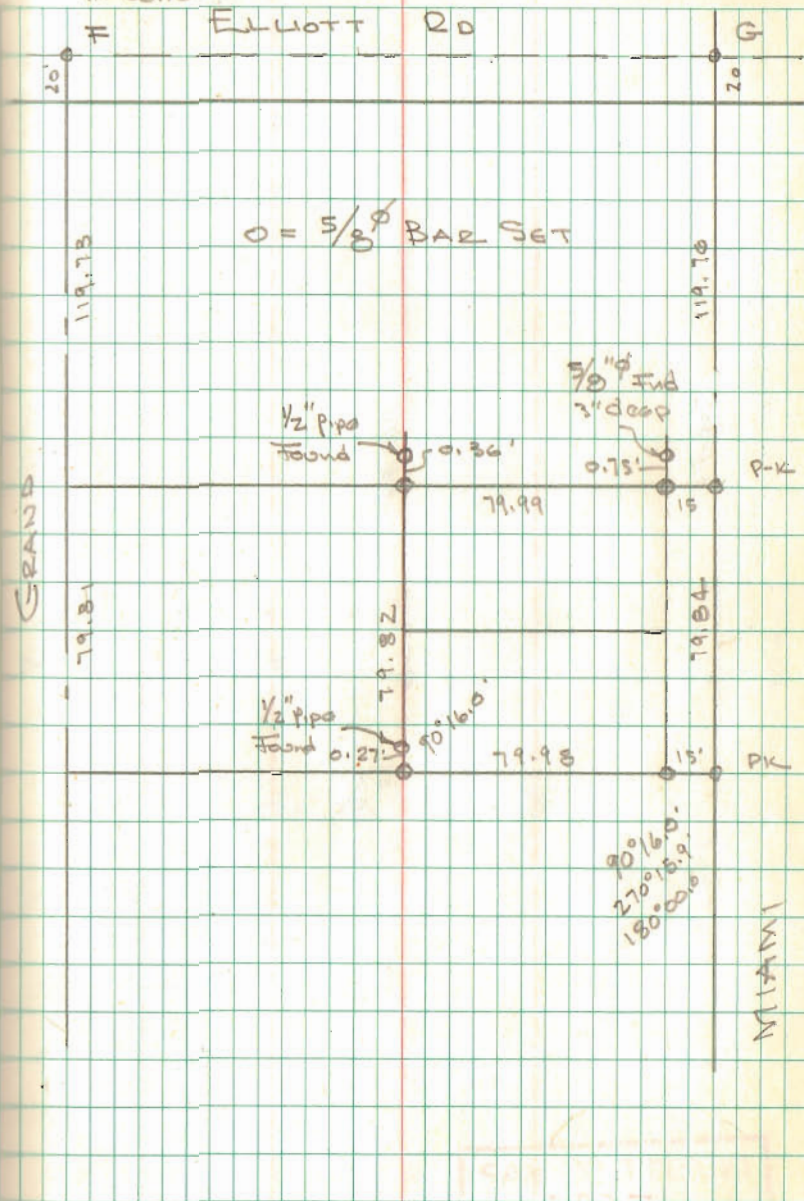 F ELLIOTT RD G
20' 20
O = 5/8 ∅ BAR SET
119.73
119.70
5/8"∅ Fnd
3" deep
1/2" pipe
Found
0.36'
0.75'
P-K
79.99
15
GRAND
79.81
79.82
79.84
1/2" pipe
Found 0.27'
90°16.0'
79.98
15'
PK
90°16.0'
270°15.9'
180°00.0
MIAMI